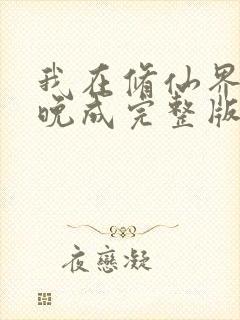 我在修仙界
晚成完整版
夜戀凝